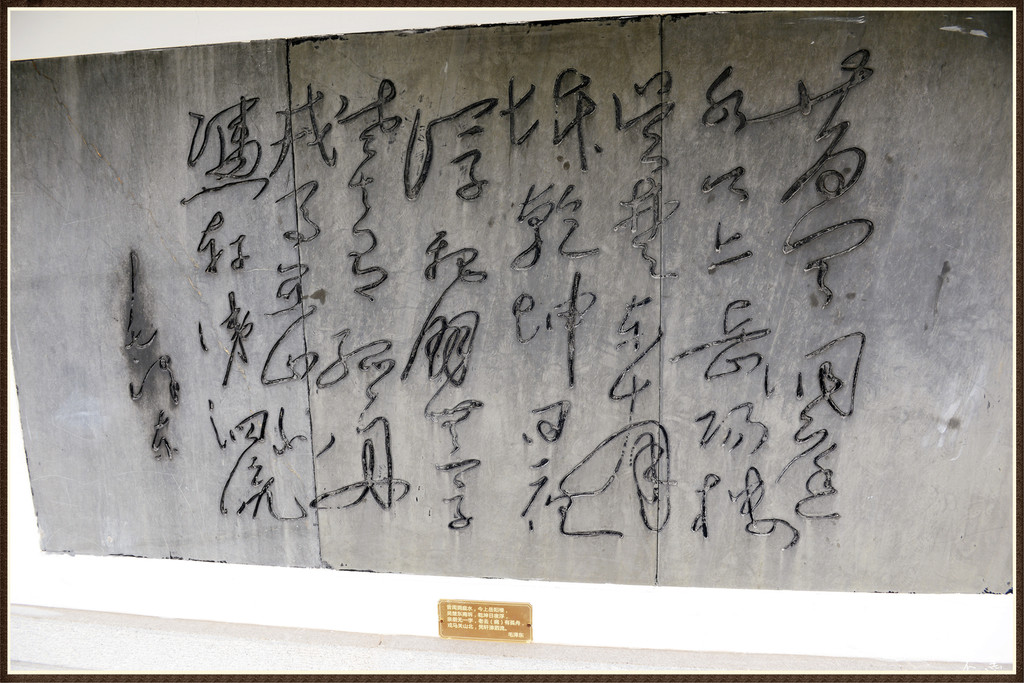 昔聞洞庭
水今上岳陽樓
吳楚東南
坼乾坤日夜
浮親朋無一字
老去有孤舟
戎馬關山北
憑軒涕泗流
毛澤東
昔闻洞庭水,今上岳阳楼,
吴楚东南坼,乾坤日夜浮。
亲朋无一字,老去(病)有孤舟,
戎马关山北,凭轩涕泗流。
毛泽东